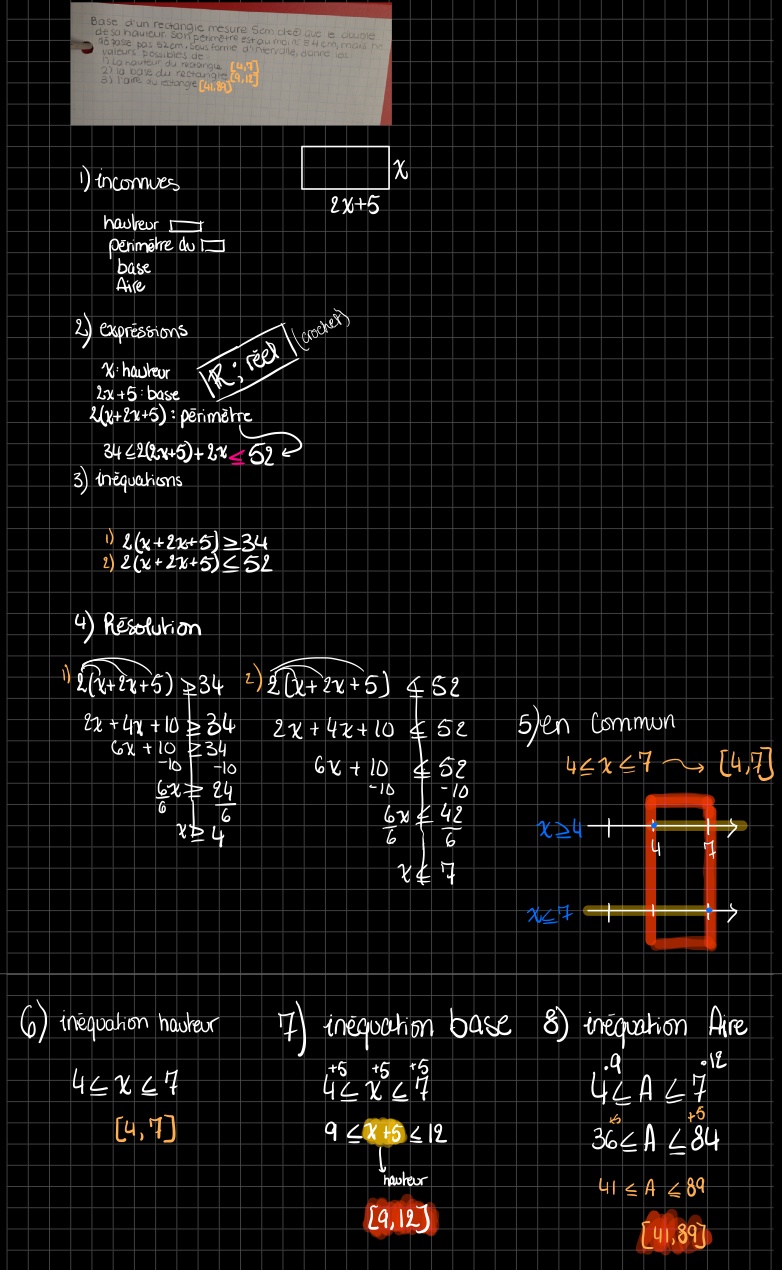 Base d'un rectangle mesure 5cm de que le double
de sa hauteur. Son périmètre est au moins 34 cm, mais ne
dépasse pas 52cm. Sous forme d'intervalle, donne les
valeurs possibles de:
1) La hauteur du rectangle [4,7]
2) la base du rectangle [9,12]
3) l'aire du rectangle [41,89]
x
2x+5
1) inconnues
hauteur
périmètre du
base
Aire
2) expressions
ℝ; réel (crochet)
x: hauteur
2x+5: base
2(x+2x+5): périmètre
34≤2(2x+5)+2x≤52
3) inéquations
1) 2(x+2x+5)≥34
2) 2(x+2x+5)≤52
4) Résolution
1) 2(x+2x+5) ≥34
2x+4x+10 ≥34
6x+10 ≥34
-10 -10
6x ≥ 24
6 6
x≥ 4
2) 2(x+2x+5) ≤ 52
2x+4x+10 ≤ 52
6x+10 ≤ 52
-10 -10
6x ≤ 42
6 6
x ≤ 7
5) en commun
4≤x≤7 → [4,7]
x≥4
4 7
x≤7
6) inéquation hauteur
4≤x≤7
[4,7]
7) inéquation base
+5 +5 +5
4≤x≤7
9≤x+5≤12
hauteur
[9,12]
8) inéquation Aire
·9 ·12
4≤A≤7
+5 +5
36≤A≤84
41≤A≤89
[41,89]